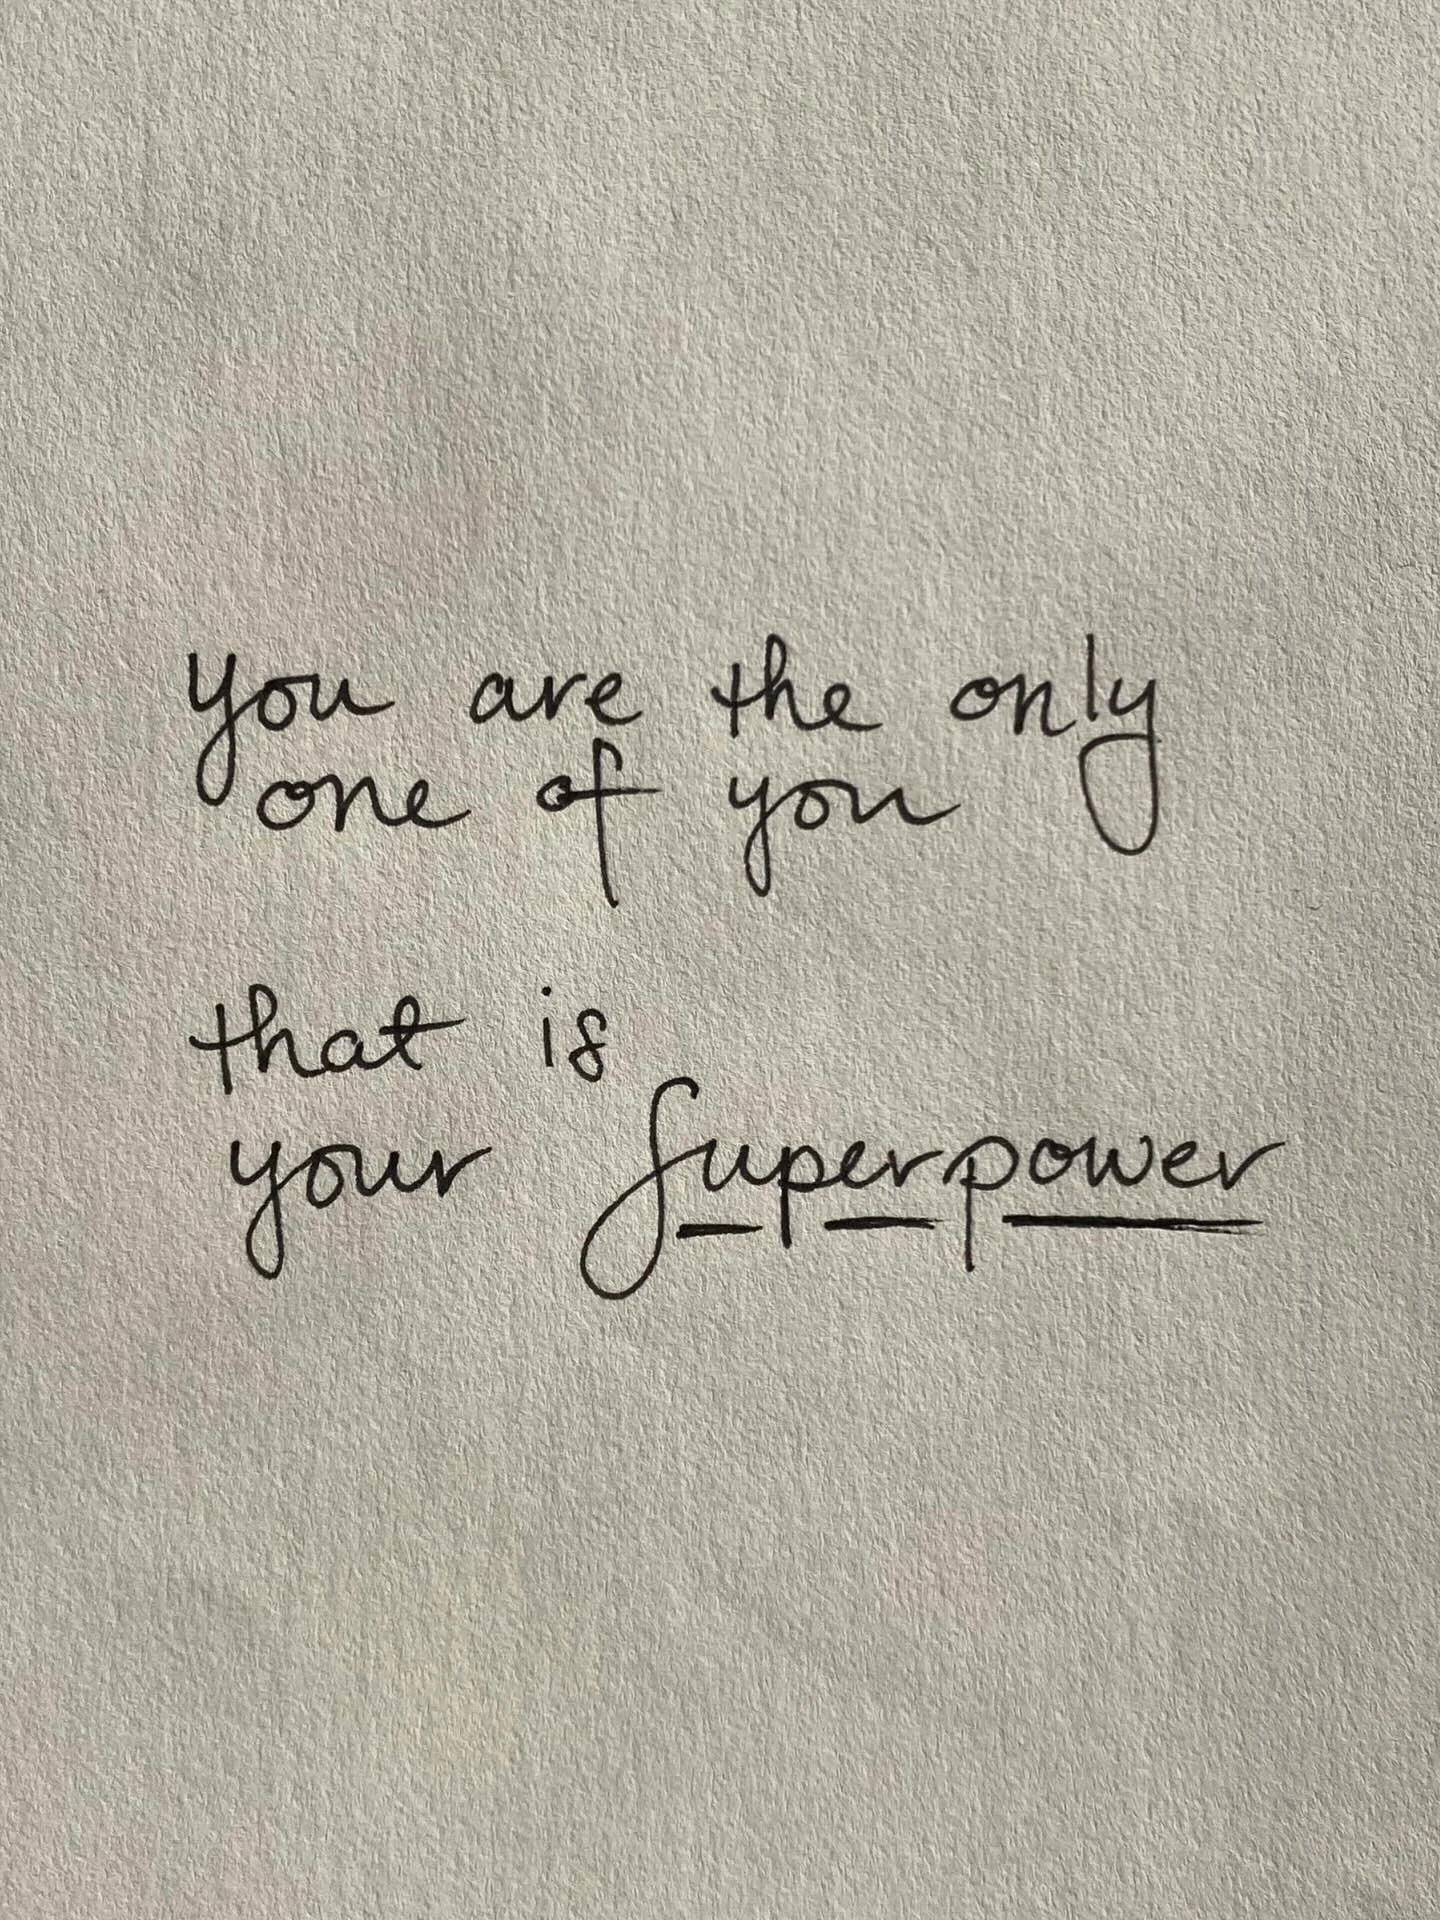 you are the only
one of you
that is
your superpower